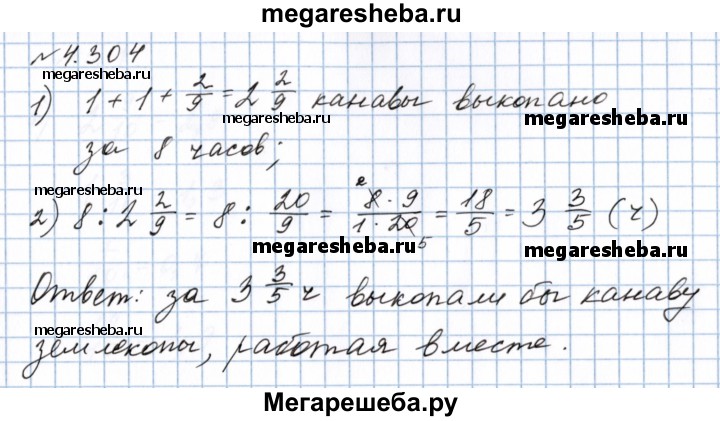 megaresheba.ru
№4.304
megaresheba.ru
1) 1 + 1 + 2/9 = 2 2/9 канавы выкопано
megaresheba.ru
megaresheba.ru
за 8 часов;
megaresheba.ru
2) 8 : 2 2/9 = 8 : 20/9 = (8 · 9)/(1 · 20) = 18/5 = 3 3/5 (ч)
2
5
megaresheba.ru
megaresheba.ru
Ответ: за 3 3/5 ч выкопали бы канаву
megaresheba.ru
землекопы, работая вместе.
Мегарешеба.ру